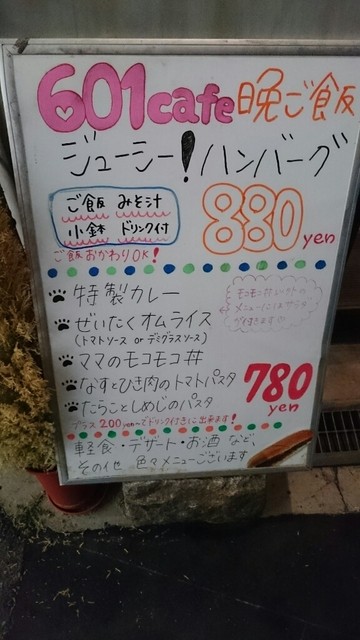 601cafe 晩ご飯
ジューシー!ハンバーグ
ご飯 みそ汁
小鉢 ドリンク付
880yen
ご飯おかわりOK!
特製カレー
ぜいたくオムライス
(トマトソース or デミグラスソース)
ママのモコモコ丼
なすとひき肉のトマトパスタ
たらことしめじのパスタ
モコモコ丼以外の
メニューにはサラダ
が付きます
780
yen
プラス200yen〜でドリンク付きに出来ます!
軽食・デザート・お酒 など、
その他 色々メニューございます